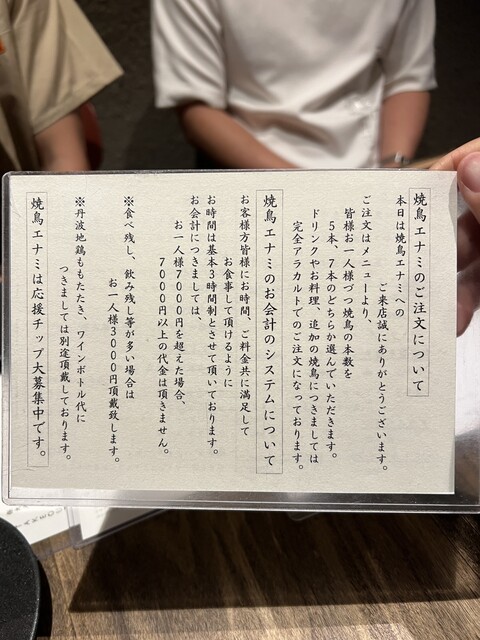 焼鳥エナミのご注文について
本日は焼鳥エナミへの
ご来店誠にありがとうございます。
ご注文はメニューより、
皆様お一人様づつ焼鳥の本数を
5本、7本のどちらか選んでいただきます。
ドリンクやお料理、追加の焼鳥につきましては
完全アラカルトでのご注文になっております。
焼鳥エナミのお会計のシステムについて
お客様方皆様にお時間、ご料金共に満足して
お食事して頂けるように
お時間は基本3時間制とさせて頂いております。
お会計につきましては、
お一人様7000円を超えた場合、
7000円以上の代金は頂きません。
※食べ残し、飲み残し等が多い場合は
お一人様3000円頂戴致します。
※丹波地鶏ももたたき、ワインボトル代に
つきましては別途頂戴しております。
焼鳥エナミは応援チップ大募集中です。